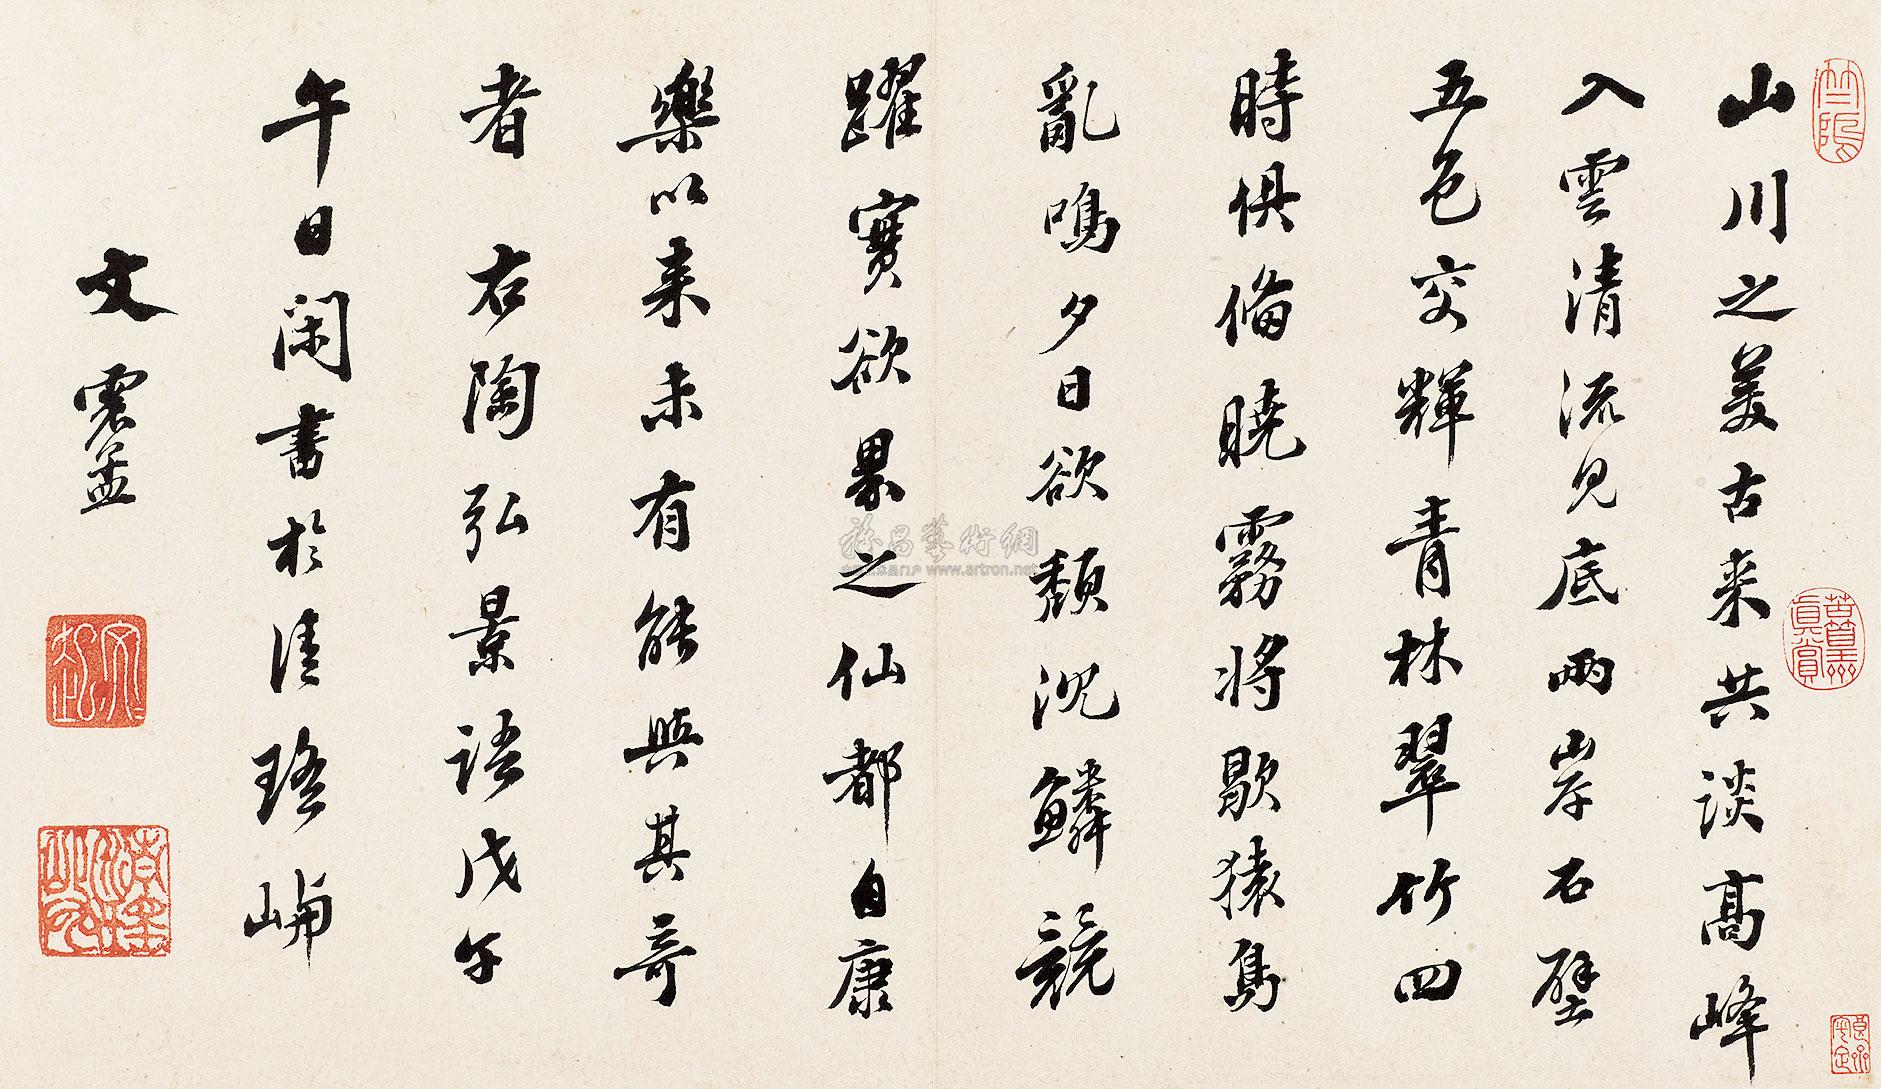 山川之美古来共談高峰
入雲清流見底兩岸石壁
五色交輝青林翠竹四
時俱俻曉霧將歇猿鳥
亂鳴夕日欲頹沉鱗競
躍實欲界之仙都自康
樂以来未有能與其奇
者 右陶弘景語戊午
午日閑書於清瑤嶼
文震孟
雅昌藝術網
www.artron.net